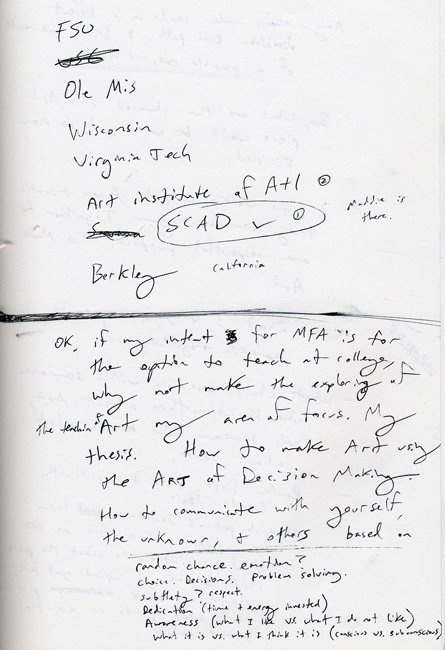 FSU
Ole Mis
Wisconsin
Virginia Tech
Art institute of Atl ②
SCAD ✓ ①
Maddie is there.
Berkley California
OK, if my intent for MFA is for
the option to teach at college,
why not make the exploring of
The teachin of Art my area of focus. My
thesis. How to make Art using
the ART of Decision Making.
How to communicate with yourself,
the unknown, & others based on
random chance. emotion?
choice. Decisions. Problem solving.
subtlety? respect.
Dedication (time + energy invested)
Awareness (what I like vs. what I do not like)
what it is vs. what I think it is (conscious vs. subconscious)